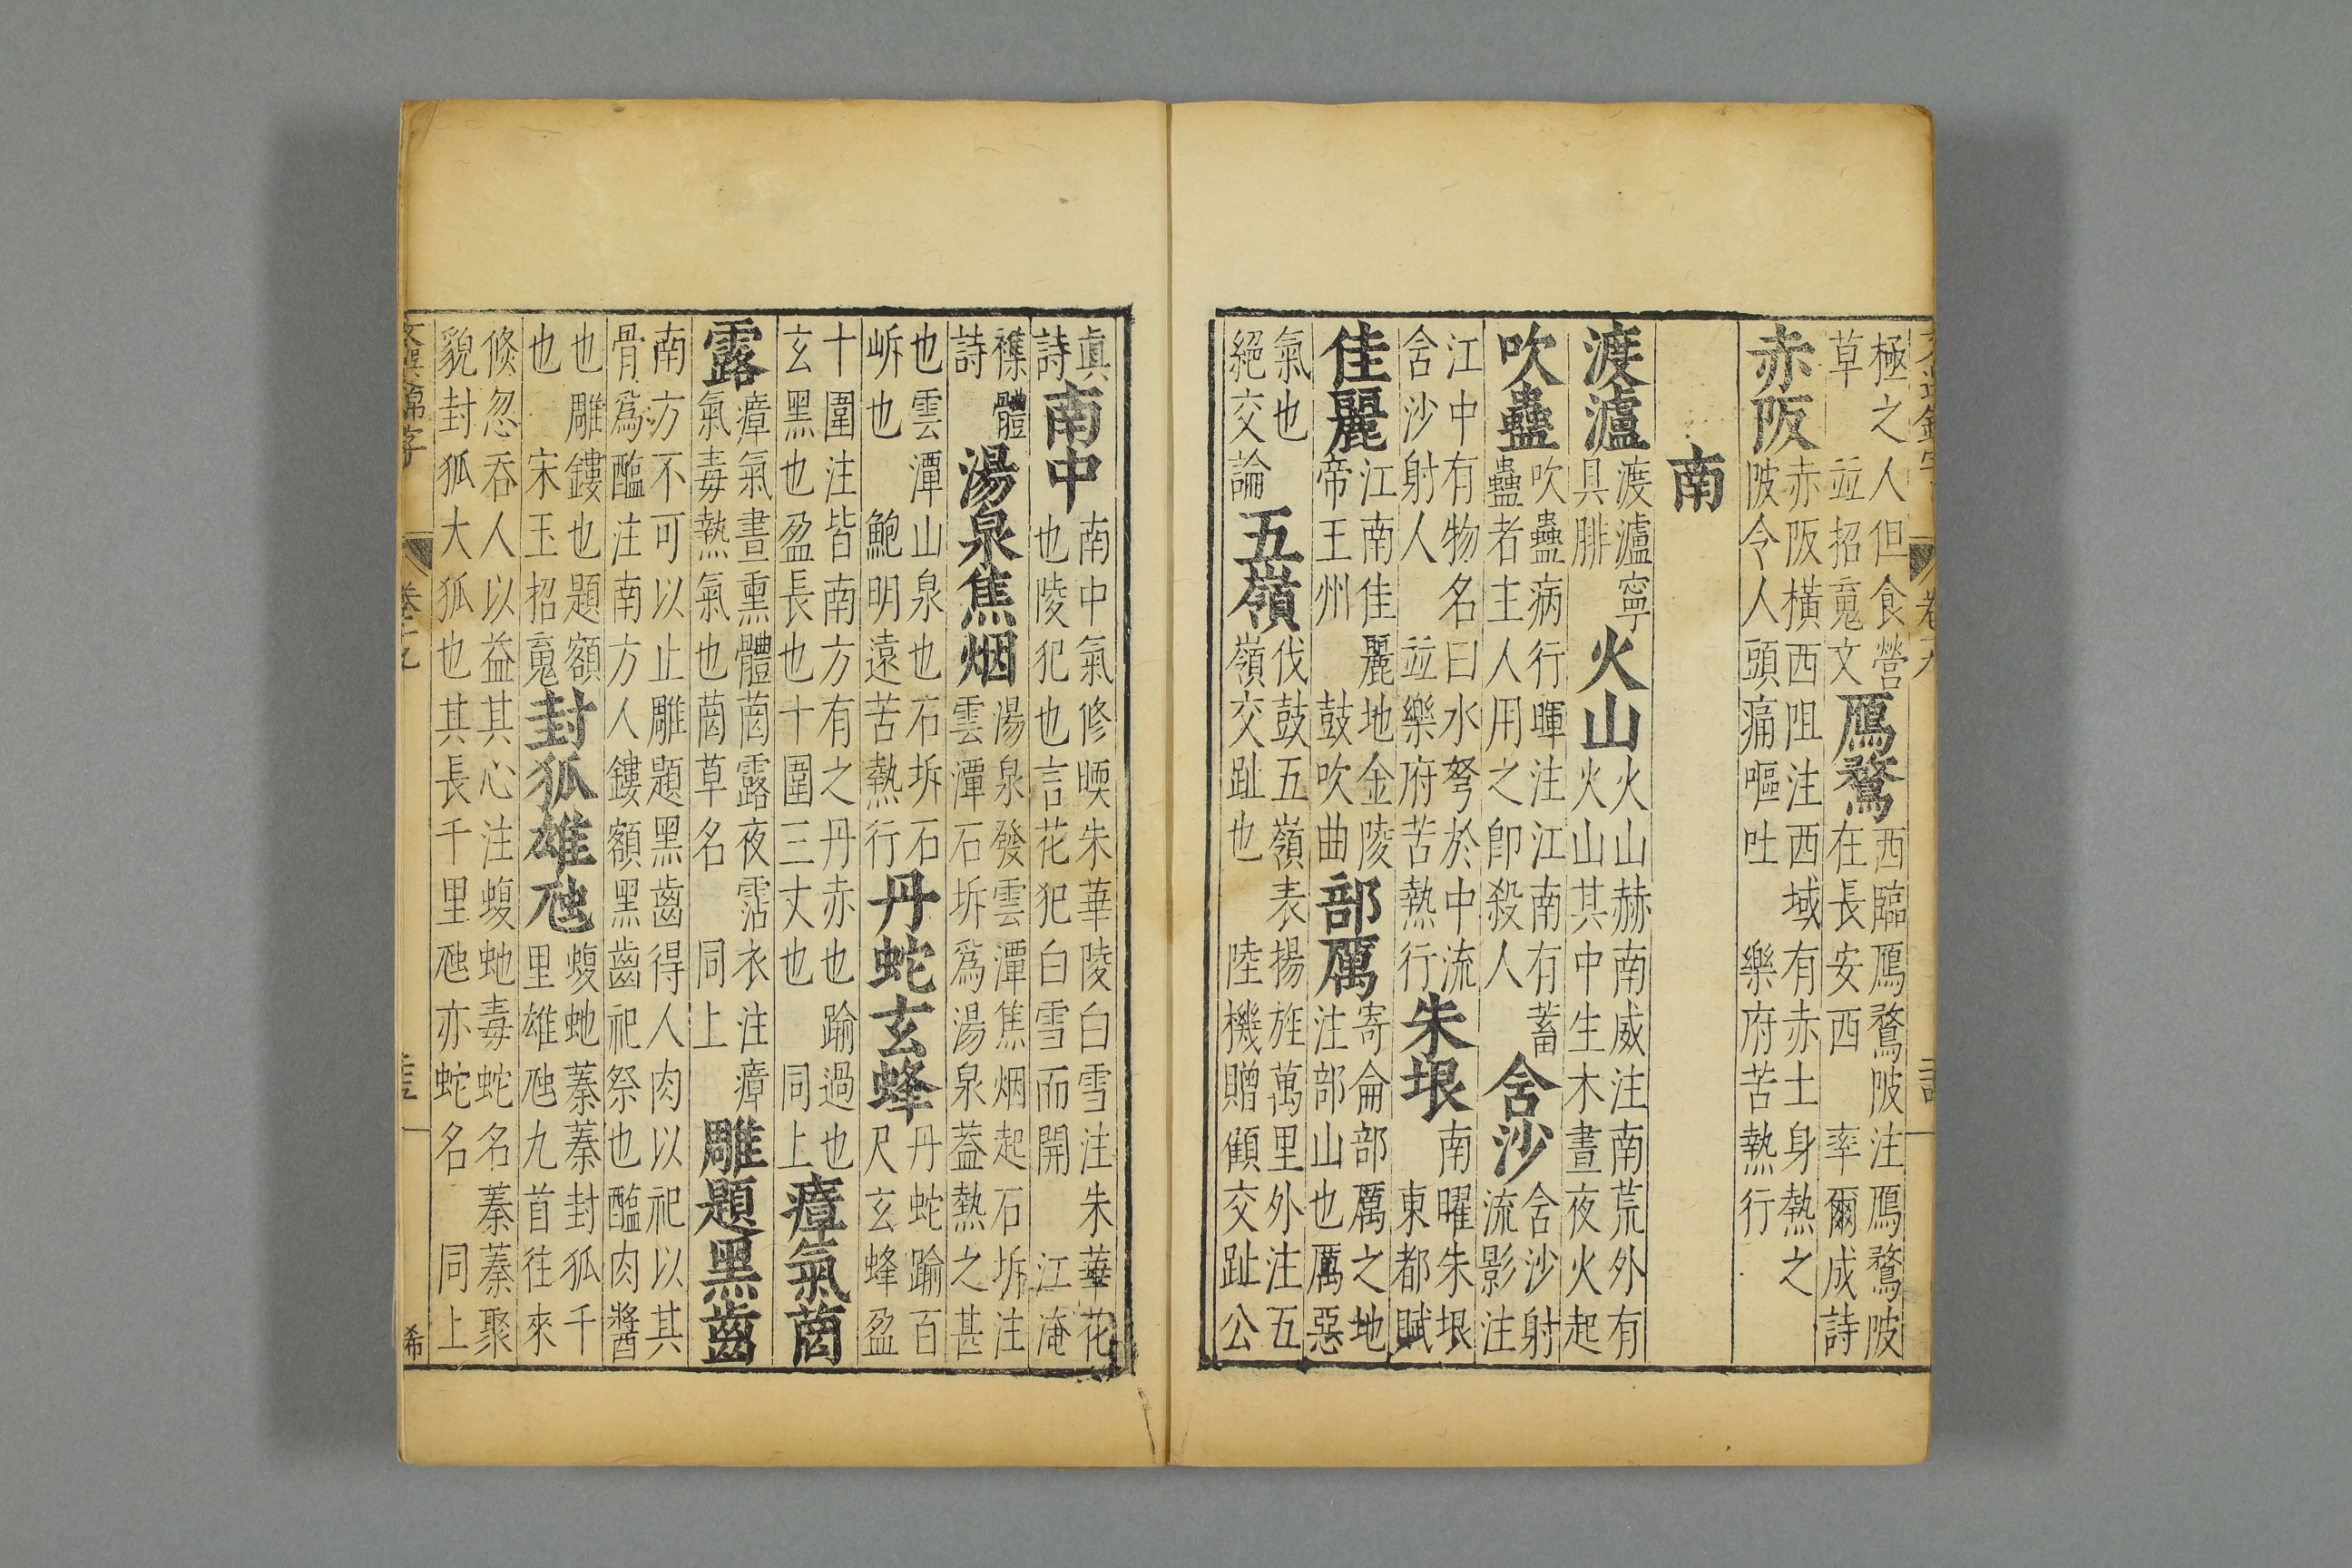 極之人但食營
草 並招䰟文
鴈鶩
西臨鴈鶩陂注鴈鶩陂
在長安西 率爾成詩
赤阪
赤阪橫西阻注西域有赤土身熱之
陂令人頭痛嘔吐 樂府苦熱行
南
渡瀘
渡瀘寧
具腓
火山
火山赫南威注南荒外有
火山其中生木晝夜火起
吹蠱
吹蠱病行暉注江南有蓄
蠱者主人用之卽殺人
舍沙
舍沙射
流影注
江中有物名曰水弩於中流
舍沙射人 並樂府苦熱行
朱垠
南曜朱垠
東都賦
佳麗
江南佳麗地金陵
帝王州 鼓吹曲
部厲
寄侖部厲之地
注部山也厲惡
氣也
絕交論
五嶺
伐鼓五嶺表揚旌萬里外注五
嶺交趾也 陸機贈顧交趾公
眞
詩
南中
南中氣修暎朱華陵白雪注朱華花
也陵犯也言花犯白雪而開 江淹
襍體
詩
湯泉焦烟
湯泉發雲潭焦烟起石坼注
雲潭石坼爲湯泉葢熱之甚
也雲潭山泉也石坼石
㟁也 鮑明遠苦熱行
丹蛇玄蜂
丹蛇踰百
尺玄蜂盈
十圍注皆南方有之丹赤也踰過也
玄黑也盈長也十圍三丈也 同上
瘴氣菵
露
瘴氣晝熏體菵露夜霑衣注瘴
氣毒熱氣也菵草名 同上
雕題黑齒
南方不可以止雕題黑齒得人肉以祀以其
骨爲醢注南方人鏤額黑齒祀祭也醢肉醬
也雕鏤也題額
也 宋玉招䰟
封狐雄虺
蝮虵蓁蓁封狐千
里雄虺九首往來
倐忽吞人以益其心注蝮虵毒蛇名蓁蓁聚
貌封狐大狐也其長千里虺亦蛇名 同上